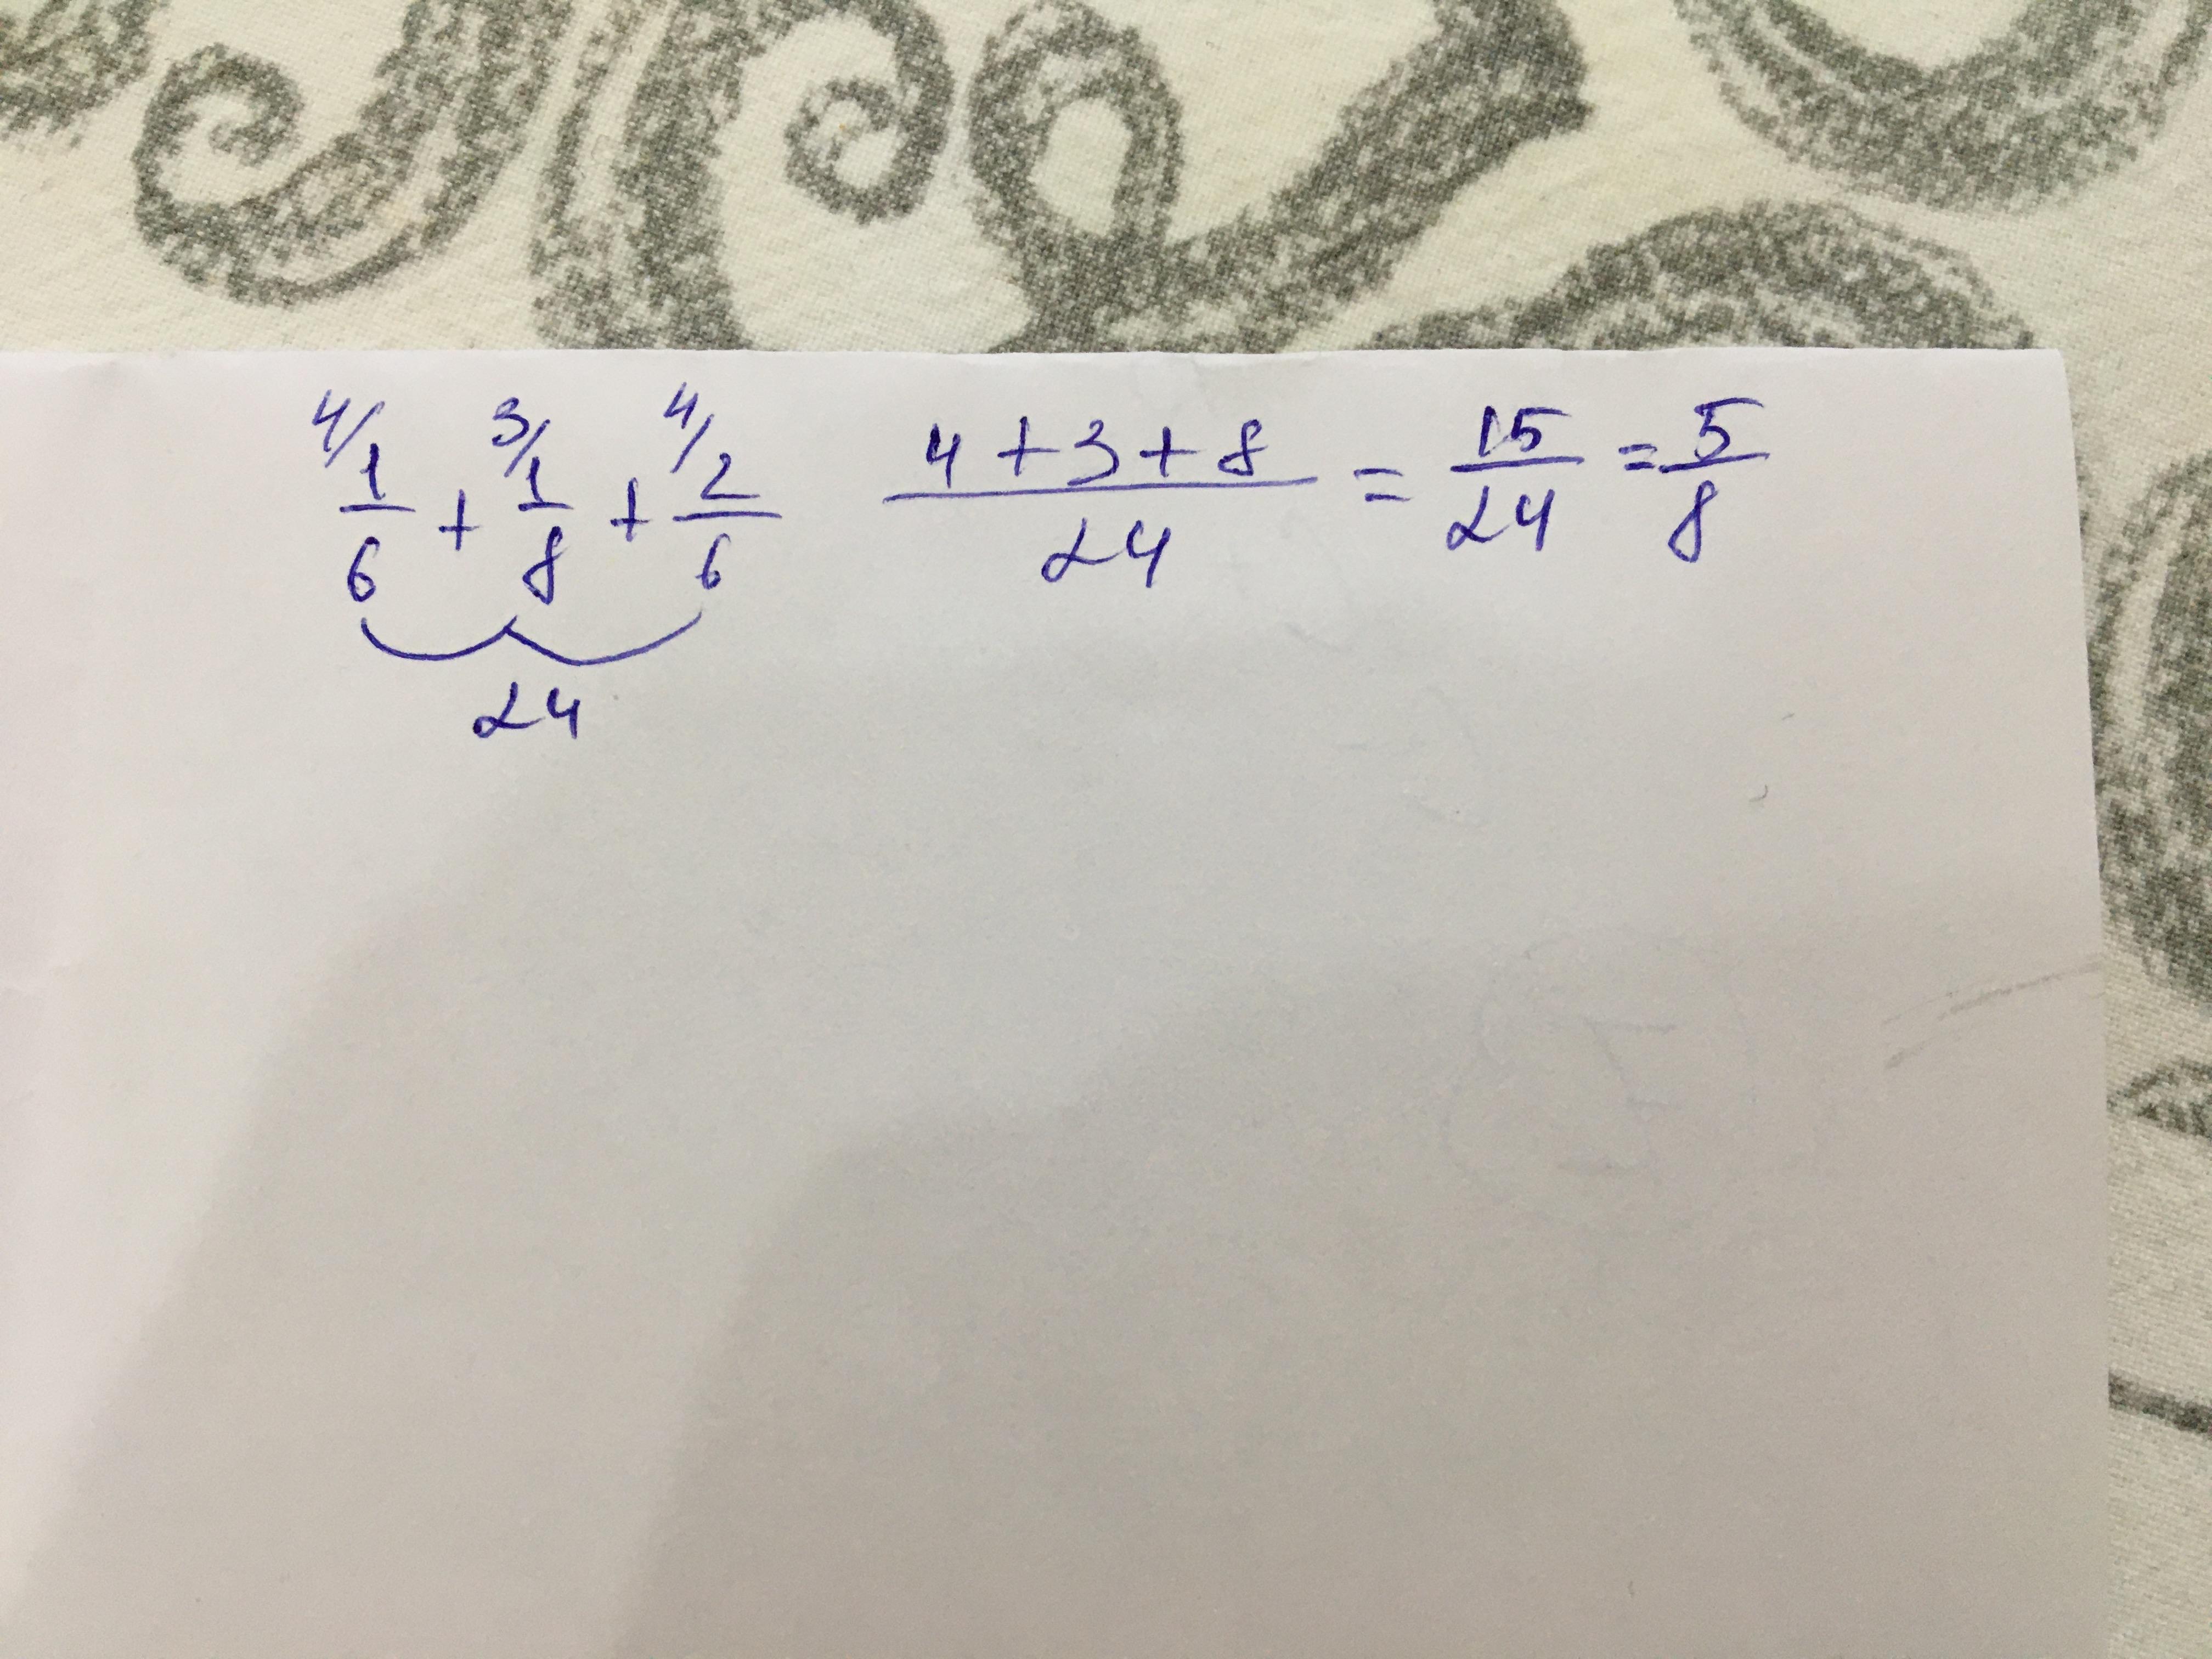 4/ 3/ 4/
1/6 + 1/8 + 2/6 4+3+8/24 = 15/24 = 5/8
24